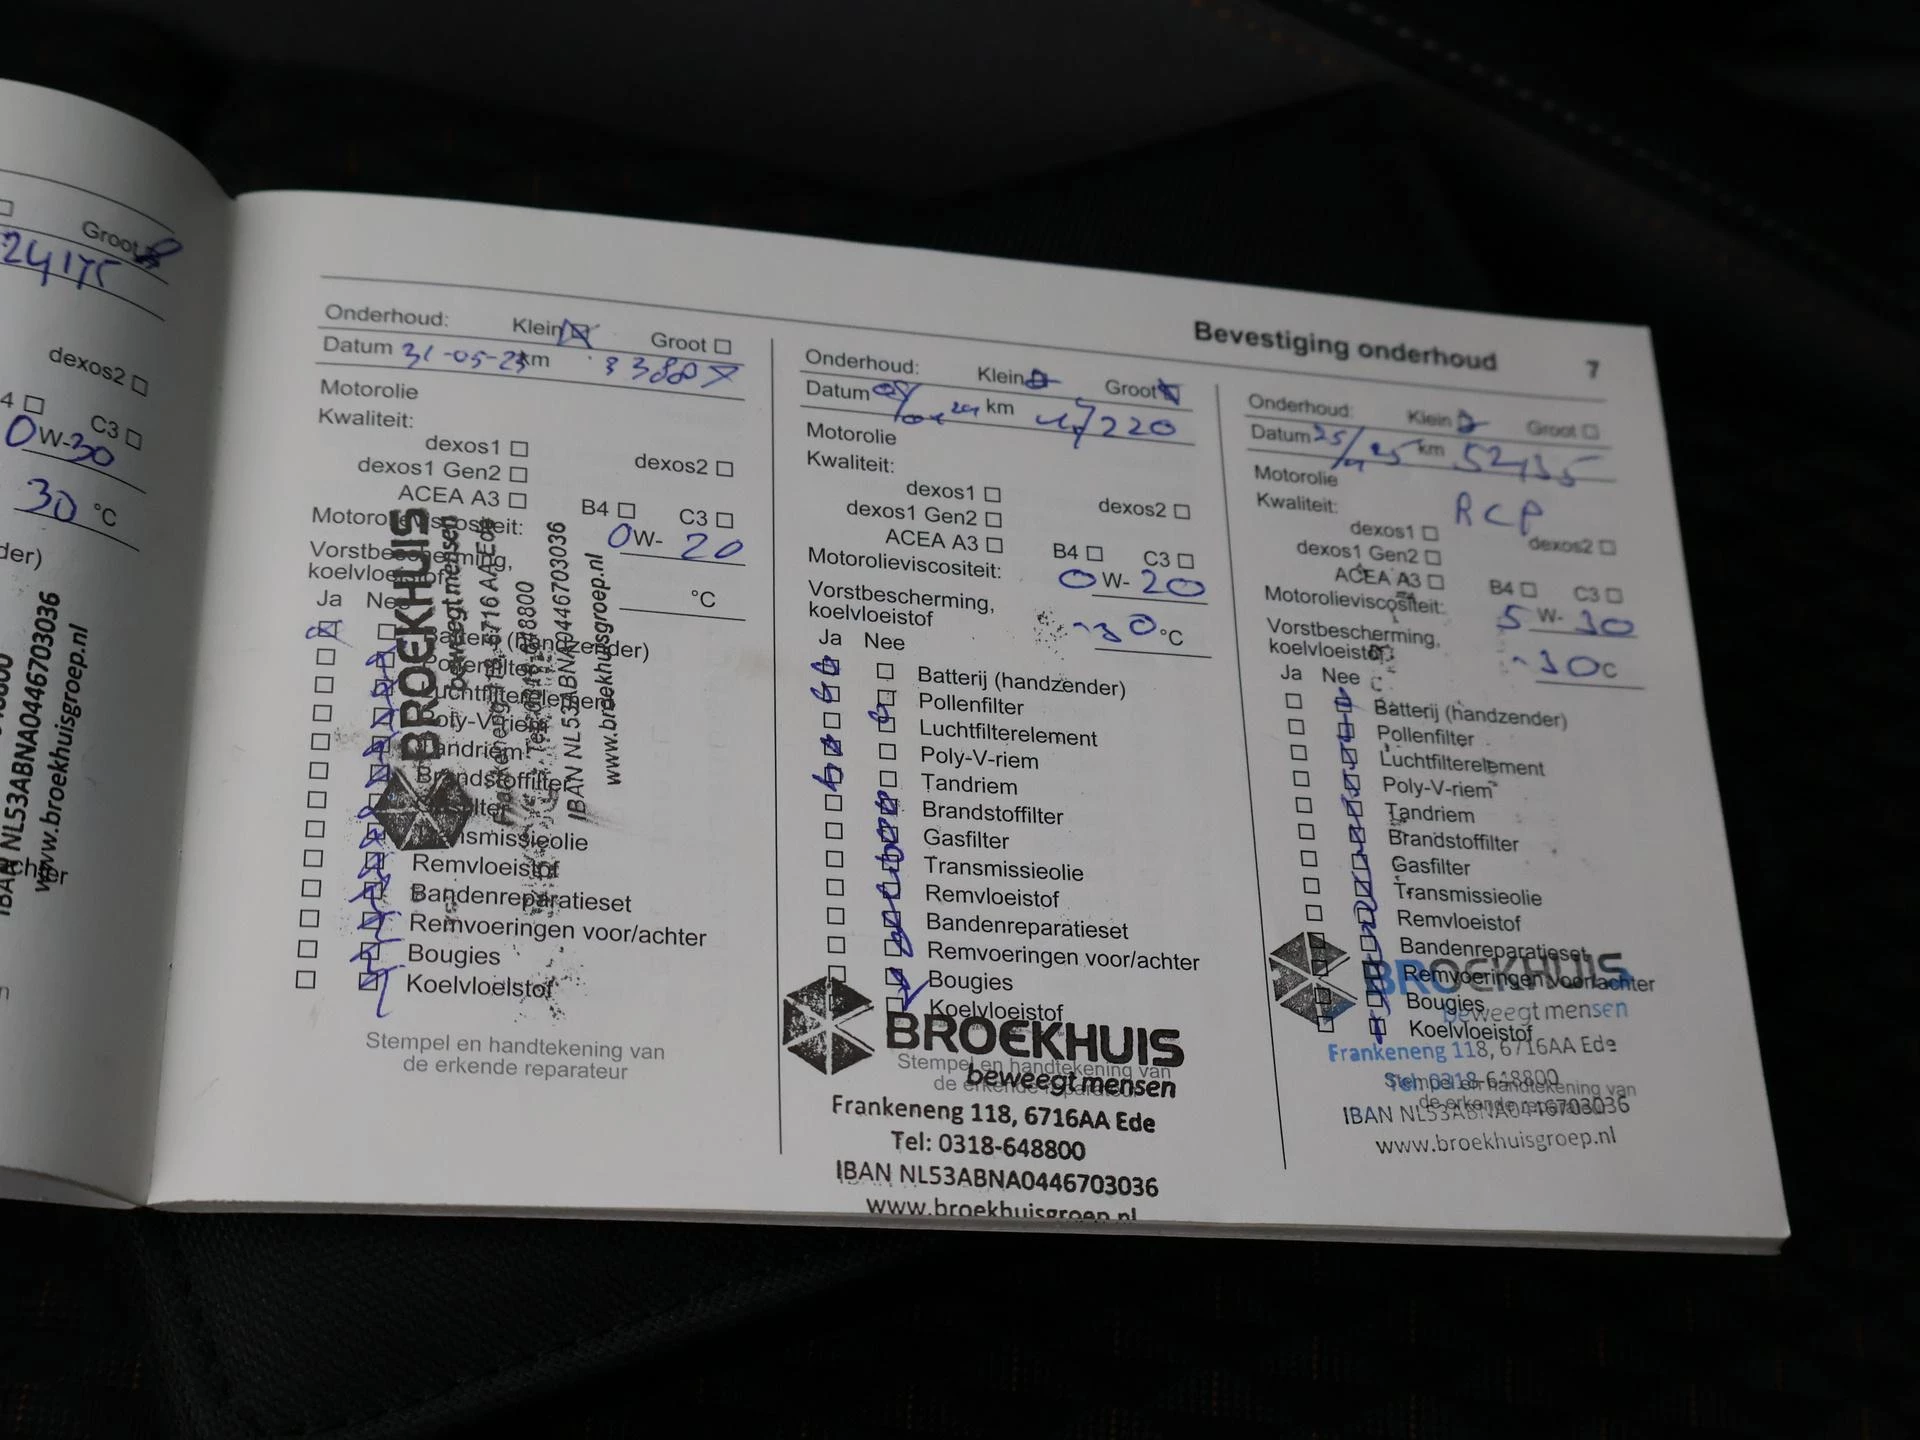 Groot
24175
dexos2
4 C3
0W-30
30 °C
der)
NL53ABNA0446703036
www.broekhuisgroep.nl
Bevestiging onderhoud 7
Onderhoud: Klein Groot
Datum 31-05-23 km 33887
Motorolie
Kwaliteit:
dexos1 dexos2
dexos1 Gen2
ACEA A3 B4 C3
Motorolieviscositeit: 0W-20
Vorstbescherming,
koelvloeistof °C
Ja Nee
Batterij (handzender)
Pollenfilter
Luchtfilterelement
Poly-V-riem
Tandriem
Brandstoffilter
Gasfilter
Transmissieolie
Remvloeistof
Bandenreparatieset
Remvoeringen voor/achter
Bougies
Koelvloeistof
BROEKHUIS
beweegt mensen
Frankeneng 118, 6716 AA Ede
IBAN NL53ABNA0446703036
www.broekhuisgroep.nl
Stempel en handtekening van
de erkende reparateur
Onderhoud: Klein Groot
Datum km 47220
Motorolie
Kwaliteit:
dexos1 dexos2
dexos1 Gen2
ACEA A3 B4 C3
Motorolieviscositeit: 0W-20
Vorstbescherming,
koelvloeistof -30°C
Ja Nee
Batterij (handzender)
Pollenfilter
Luchtfilterelement
Poly-V-riem
Tandriem
Brandstoffilter
Gasfilter
Transmissieolie
Remvloeistof
Bandenreparatieset
Remvoeringen voor/achter
Bougies
Koelvloeistof
BROEKHUIS
Stempel en handtekening van
de erkende reparateur
beweegt mensen
Frankeneng 118, 6716AA Ede
Tel: 0318-648800
IBAN NL53ABNA0446703036
www.broekhuisgroep.nl
Onderhoud: Klein Groot
Datum km
Motorolie
Kwaliteit: RCP
dexos1 dexos2
dexos1 Gen2
ACEA A3 B4 C3
Motorolieviscositeit: 5W-30
Vorstbescherming,
koelvloeistof -30C
Ja Nee
Batterij (handzender)
Pollenfilter
Luchtfilterelement
Poly-V-riem
Tandriem
Brandstoffilter
Gasfilter
Transmissieolie
Remvloeistof
Bandenreparatieset
Remvoeringen voor/achter
Bougies
Koelvloeistof
BROEKHUIS
beweegt mensen
Frankeneng 118, 6716AA Ede
Tel: 0318-648800
Stempel en handtekening van
de erkende reparateur
IBAN NL53ABNA0446703036
www.broekhuisgroep.nl